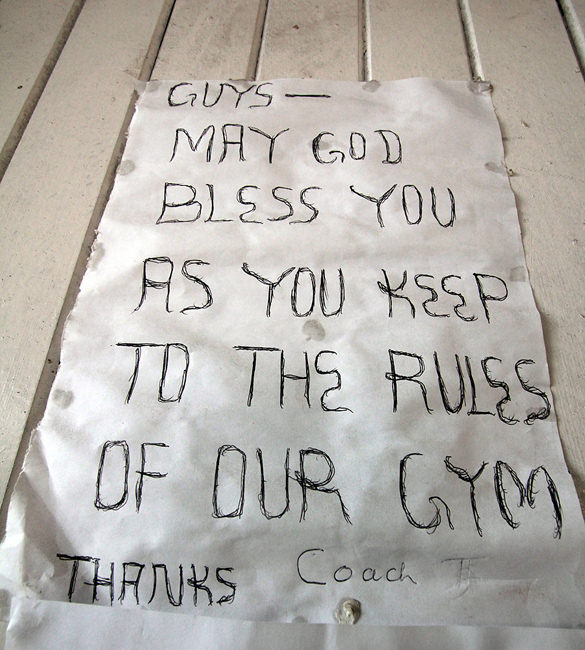 GUYS —
MAY GOD
BLESS YOU
AS YOU KEEP
TO THE RULES
OF OUR GYM
THANKS Coach II